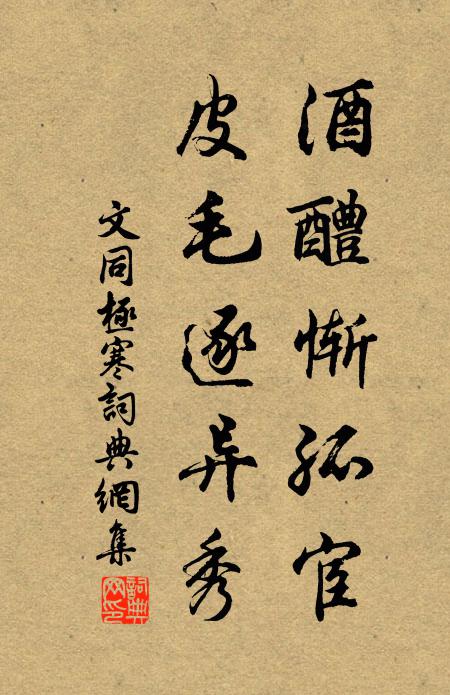 酒醴惭孤宦
皮毛逐异秀
文同極寒詞典網集
詞典网印